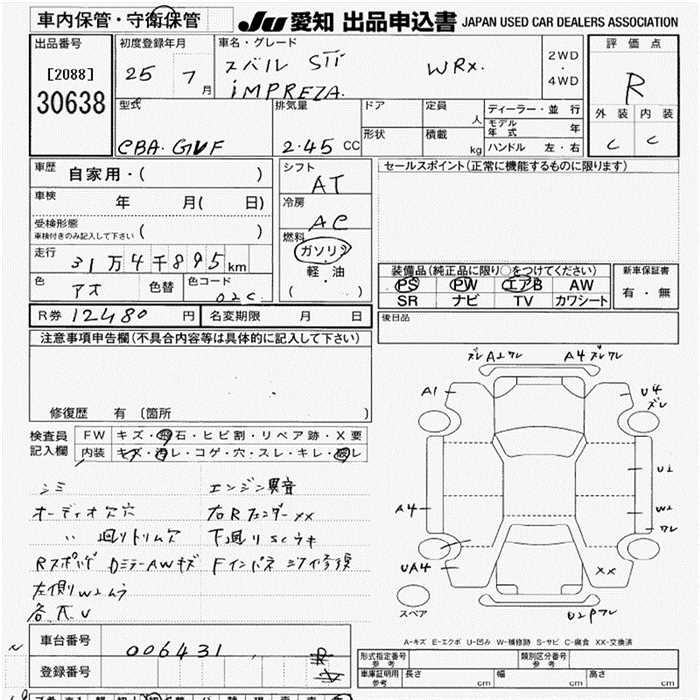 車内保管・守衛保管
JU 愛知 出品申込書 JAPAN USED CAR DEALERS ASSOCIATION
出品番号
[2088]
30638
初度登録年月
25 7月
車名・グレード
スバル STi WRX.
iMPREZA.
2WD
・
4WD
評価点
R
外装 内装
C C
型式
CBA. GVF
排気量
2.45 CC
ドア
形状
定員 人
積載 kg
ディーラー・並行
モデル年式 年
ハンドル 左・右
車歴 自家用・( )
車検 年 月( 日)
受検形態
車検付きのみ記入して下さい ( )
走行 31万4千895km
色 アオ 色替 色コード 02C
シフト AT
冷房 AC
燃料
ガソリン
軽・油
( )
セールスポイント(正常に機能するものに限ります)
装備品(純正品に限り○をつけてください)
PS PW エアB AW
SR ナビ TV カワシート
新車保証書
有・無
R券 12480 円 名変期限 月 日
後日品
注意事項申告欄(不具合内容等は具体的に記入して下さい)
修復歴 有 (箇所 )
検査員
記入欄
FW キズ・飛石・ヒビ割・リペア跡・X要
内装 キズ・汚レ・コゲ・穴・スレ・キレ・破レ
シミ エンジン異音
オーディオ欠穴 右Rフェンダーxx
〃 廻りトリム欠 下廻りSCウキ
Rスポイラ DミラーAWキズ Fインパネ
左側W1ムラ
各瓜U
ズレA1ワレ A4ズレワレ
A1
U4
ズレ
U1
W2
ワレ
A4
UA4
XX
スペア
U2Pワレ
A-キズ E-エクボ U-凹み W-補修跡 S-サビ C-腐食 XX-交換済
車台番号 006431
登録番号
形式指定番号
参考
類別区分番号
参考
車庫証明用
参考
長さ cm 幅 cm 高さ cm